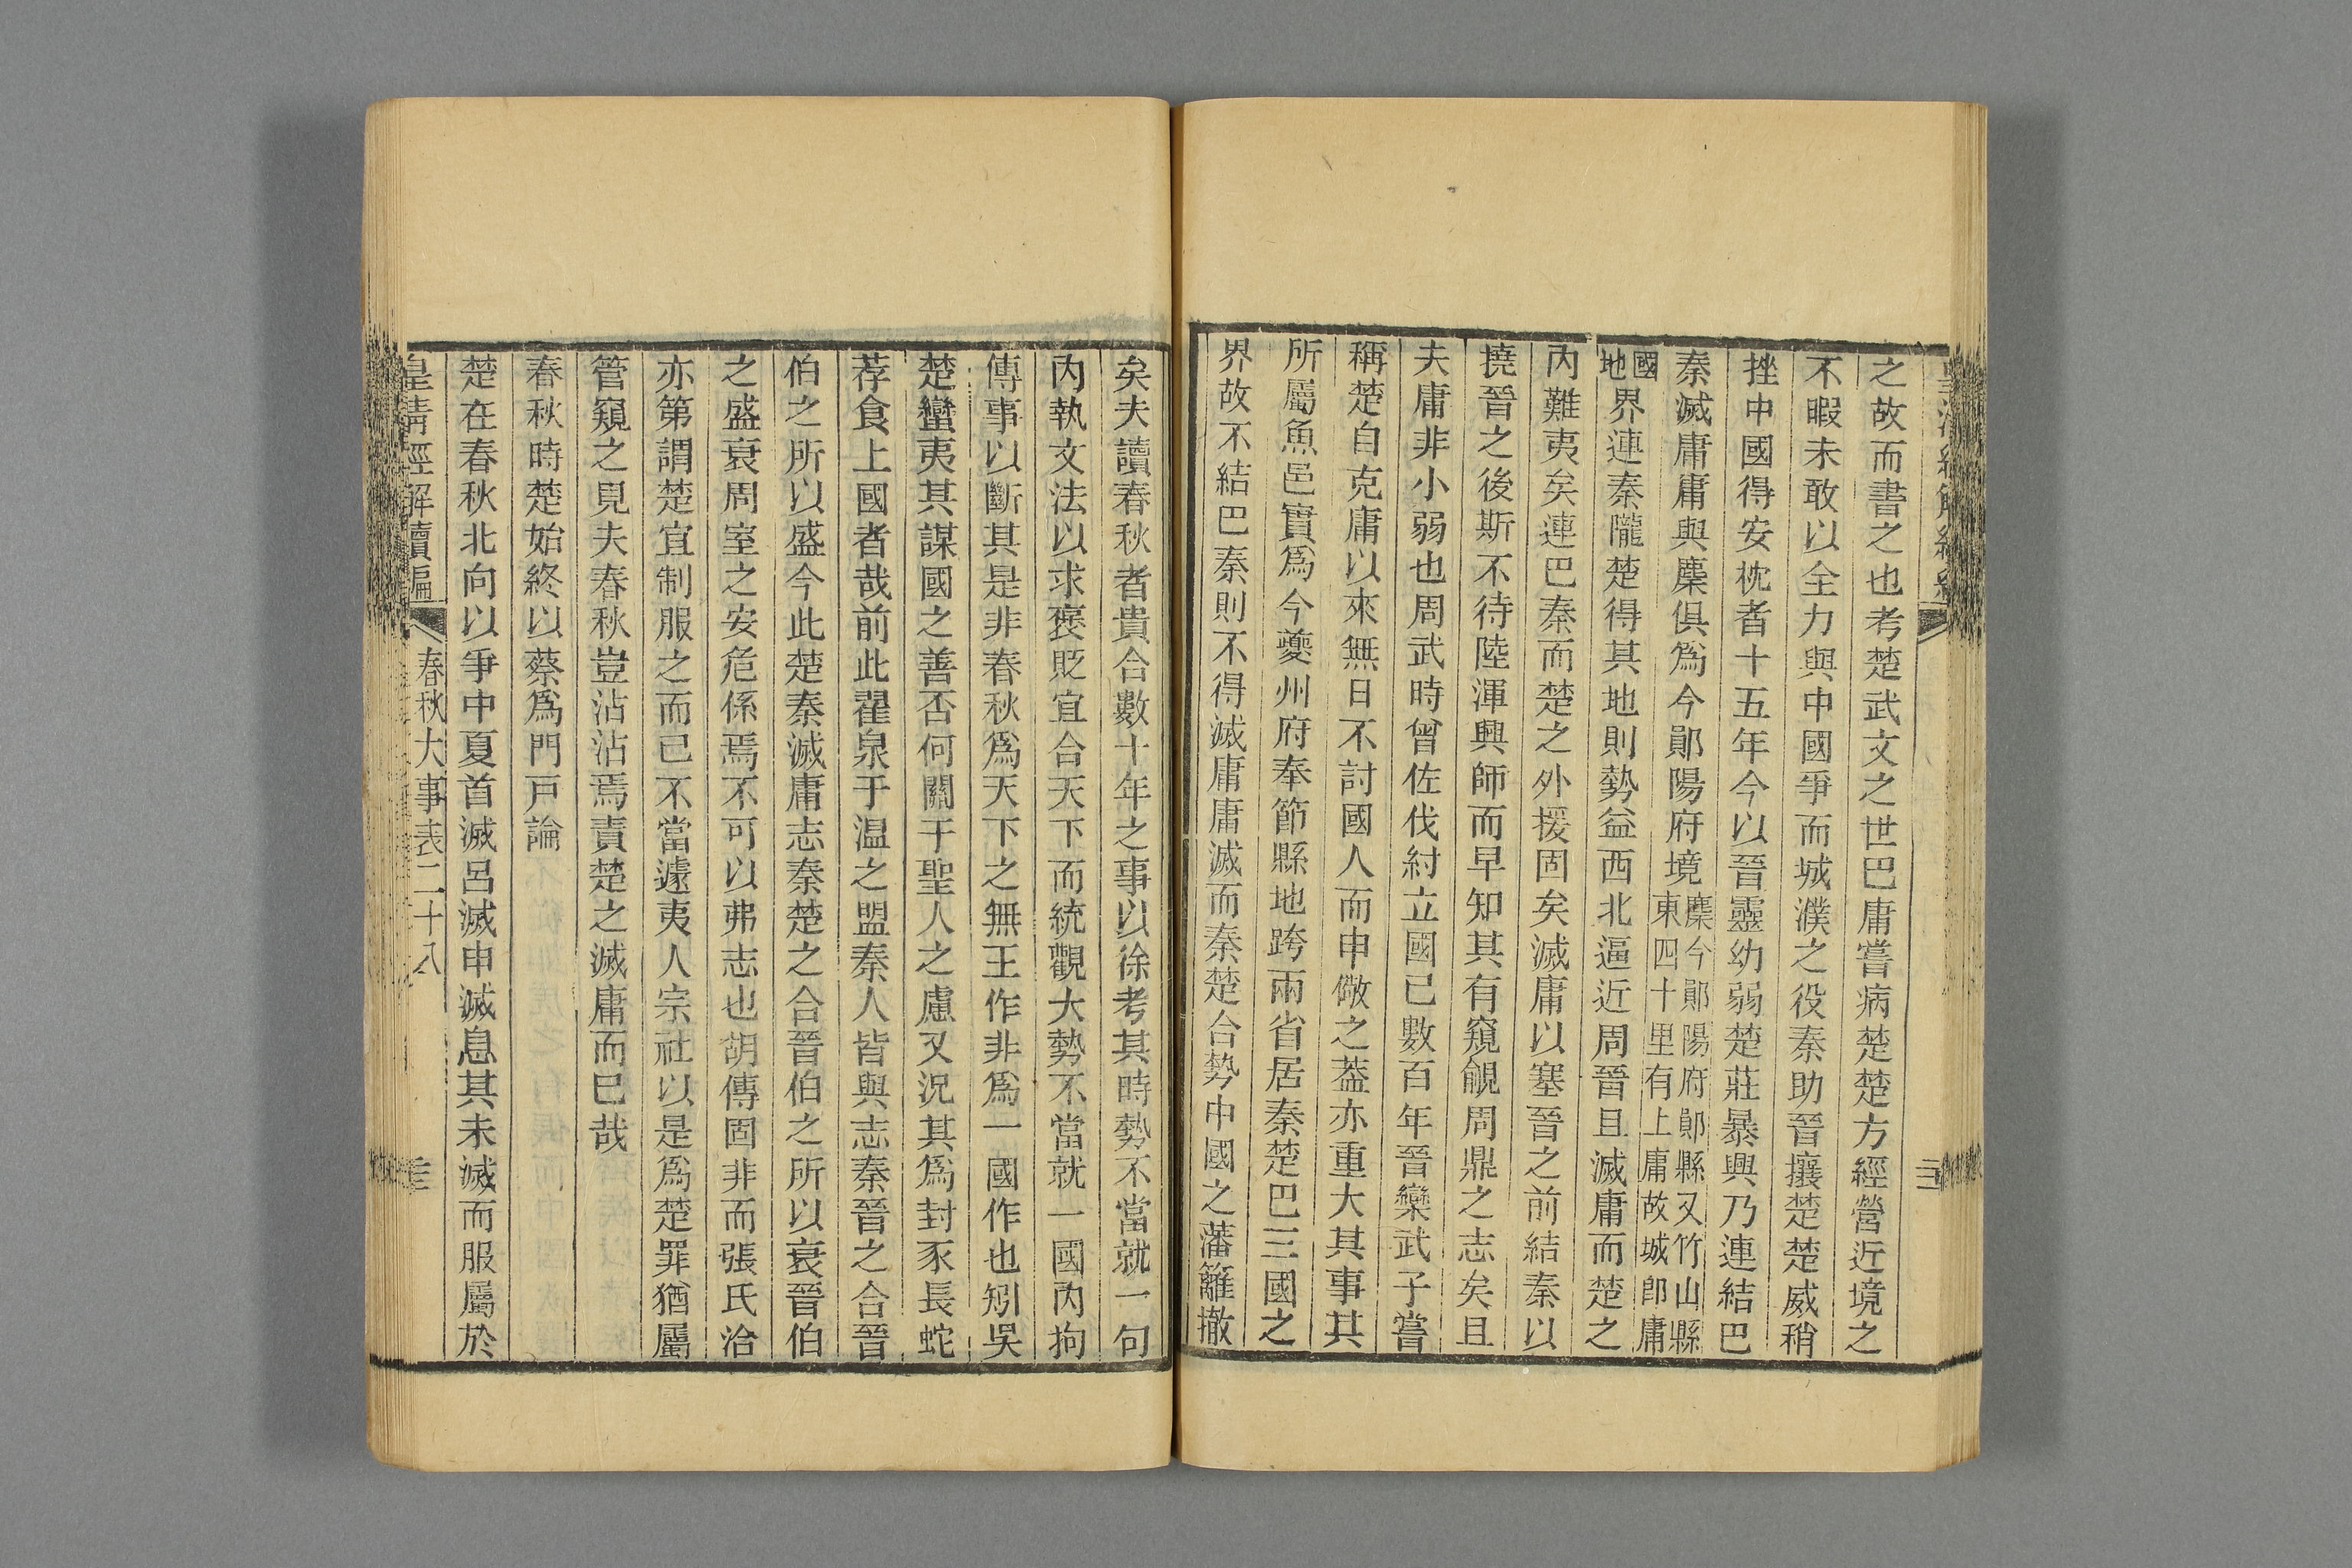 之故而書之也考楚武文之世巴庸嘗病楚楚方經營近境之
不暇未敢以全力與中國爭而城濮之役秦助晉攘楚楚威稍
挫中國得安枕者十五年今以晉靈幼弱楚莊暴興乃連結巴
秦滅庸庸與麇俱爲今鄖陽府境麇今鄖陽府鄖縣又竹山縣東四十里有上庸故城卽庸
國地界連秦隴楚得其地則勢益西北逼近周晉且滅庸而楚之
內難夷矣連巴秦而楚之外援固矣滅庸以塞晉之前結秦以
撓晉之後斯不待陸渾興師而早知其有窺覦周鼎之志矣且
夫庸非小弱也周武時曾佐伐紂立國已數百年晉欒武子嘗
稱楚自克庸以來無日不討國人而申儆之葢亦重大其事其
所屬魚邑實爲今夔州府奉節縣地跨兩省居秦楚巴三國之
界故不結巴秦則不得滅庸庸滅而秦楚合勢中國之藩籬撤
矣夫讀春秋者貴合數十年之事以徐考其時勢不當就一句
內執文法以求襃貶宜合天下而統觀大勢不當就一國內拘
傳事以斷其是非春秋爲天下之無王作非爲一國作也矧吳
楚蠻夷其謀國之善否何關于聖人之慮又況其爲封豕長蛇
荐食上國者哉前此翟泉于温之盟秦人皆與志秦晉之合晉
伯之所以盛今此楚秦滅庸志秦楚之合晉伯之所以衰晉伯
之盛衰周室之安危係焉不可以弗志也胡傳固非而張氏洽
亦第謂楚宜制服之而已不當遽夷人宗社以是爲楚罪猶屬
管窺之見夫春秋豈沾沾焉責楚之滅庸而已哉
春秋時楚始終以蔡爲門戸論
楚在春秋北向以爭中夏首滅呂滅申滅息其未滅而服屬於
皇清經解續編
春秋大事表二十八